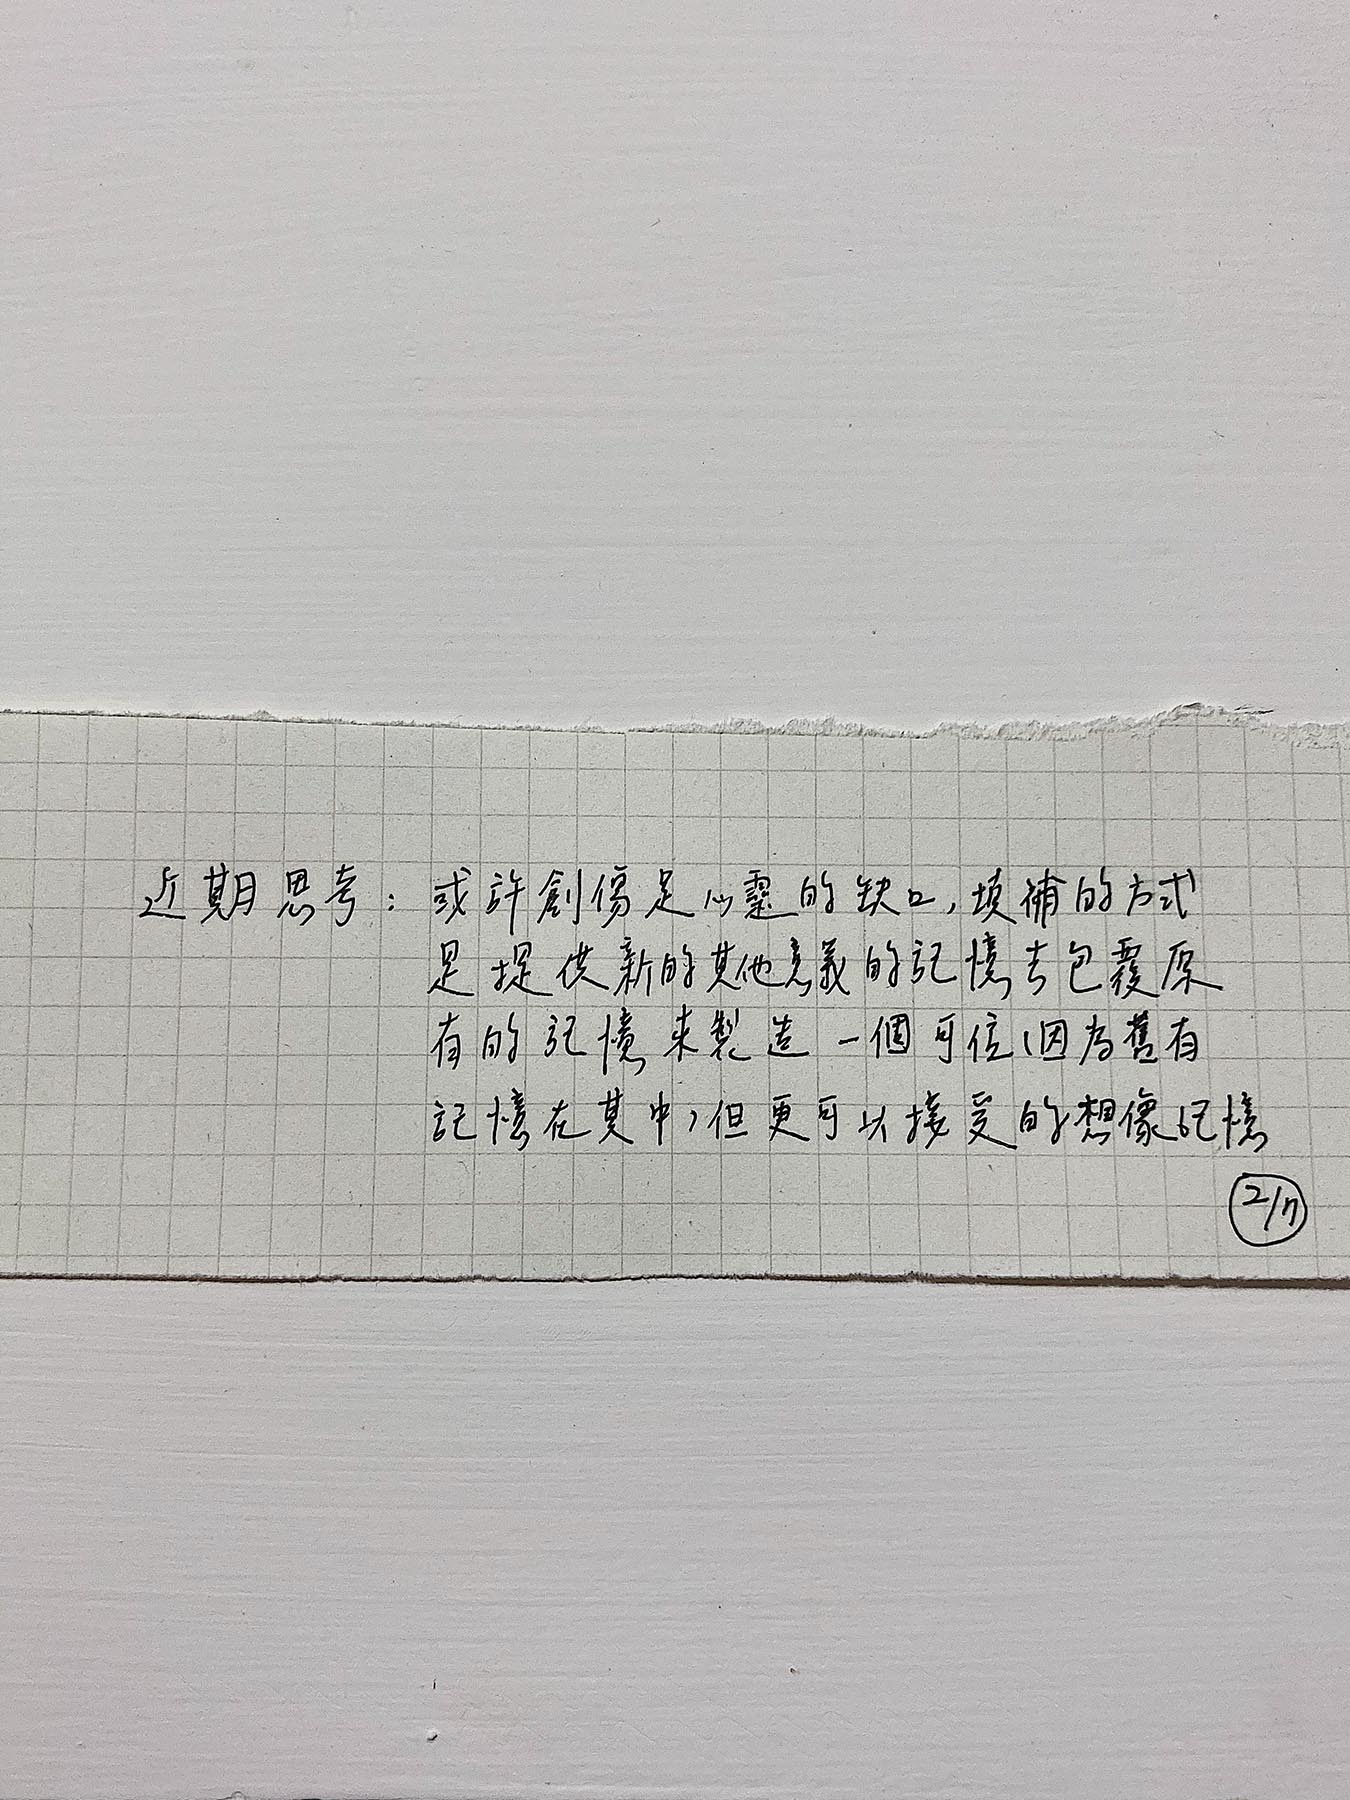 近期思考：或許創傷是心靈的缺口，填補的方式
是提供新的其他意義的記憶去包覆原
有的記憶來製造一個可信(因為舊有
記憶在其中，但更可以接受的想像記憶
2/7